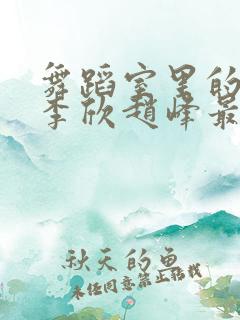 舞蹈室里的
李欣赵峰最
秋天的鱼
未经同意禁止转载